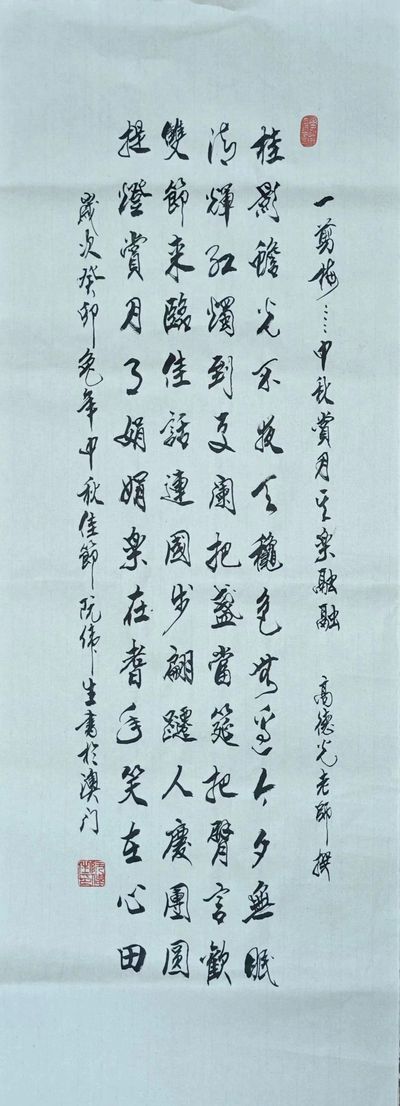 一剪梅……中秋賞月其樂融融 高德光老師撰
桂影蟾光不夜天穐色無邊今夕無眠
清輝紅燭到更闌把盞當筵把臂言歡
雙節來臨佳話連國步翩躚人慶團圓
提燈賞月月娟娟樂在耆年笑在心田
歲次癸卯兔年中秋佳節阮偉生書於澳门